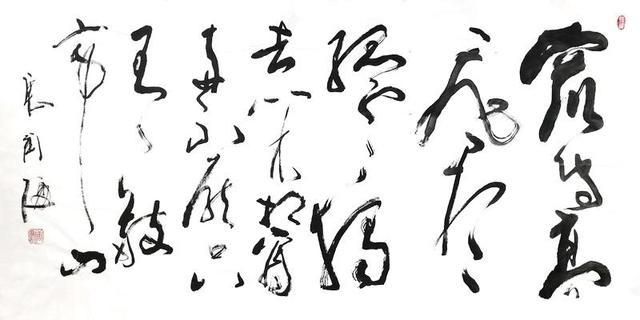 眾鳥高
飛盡
孤雲獨
去閒相看
兩不厭只
有敬
亭山